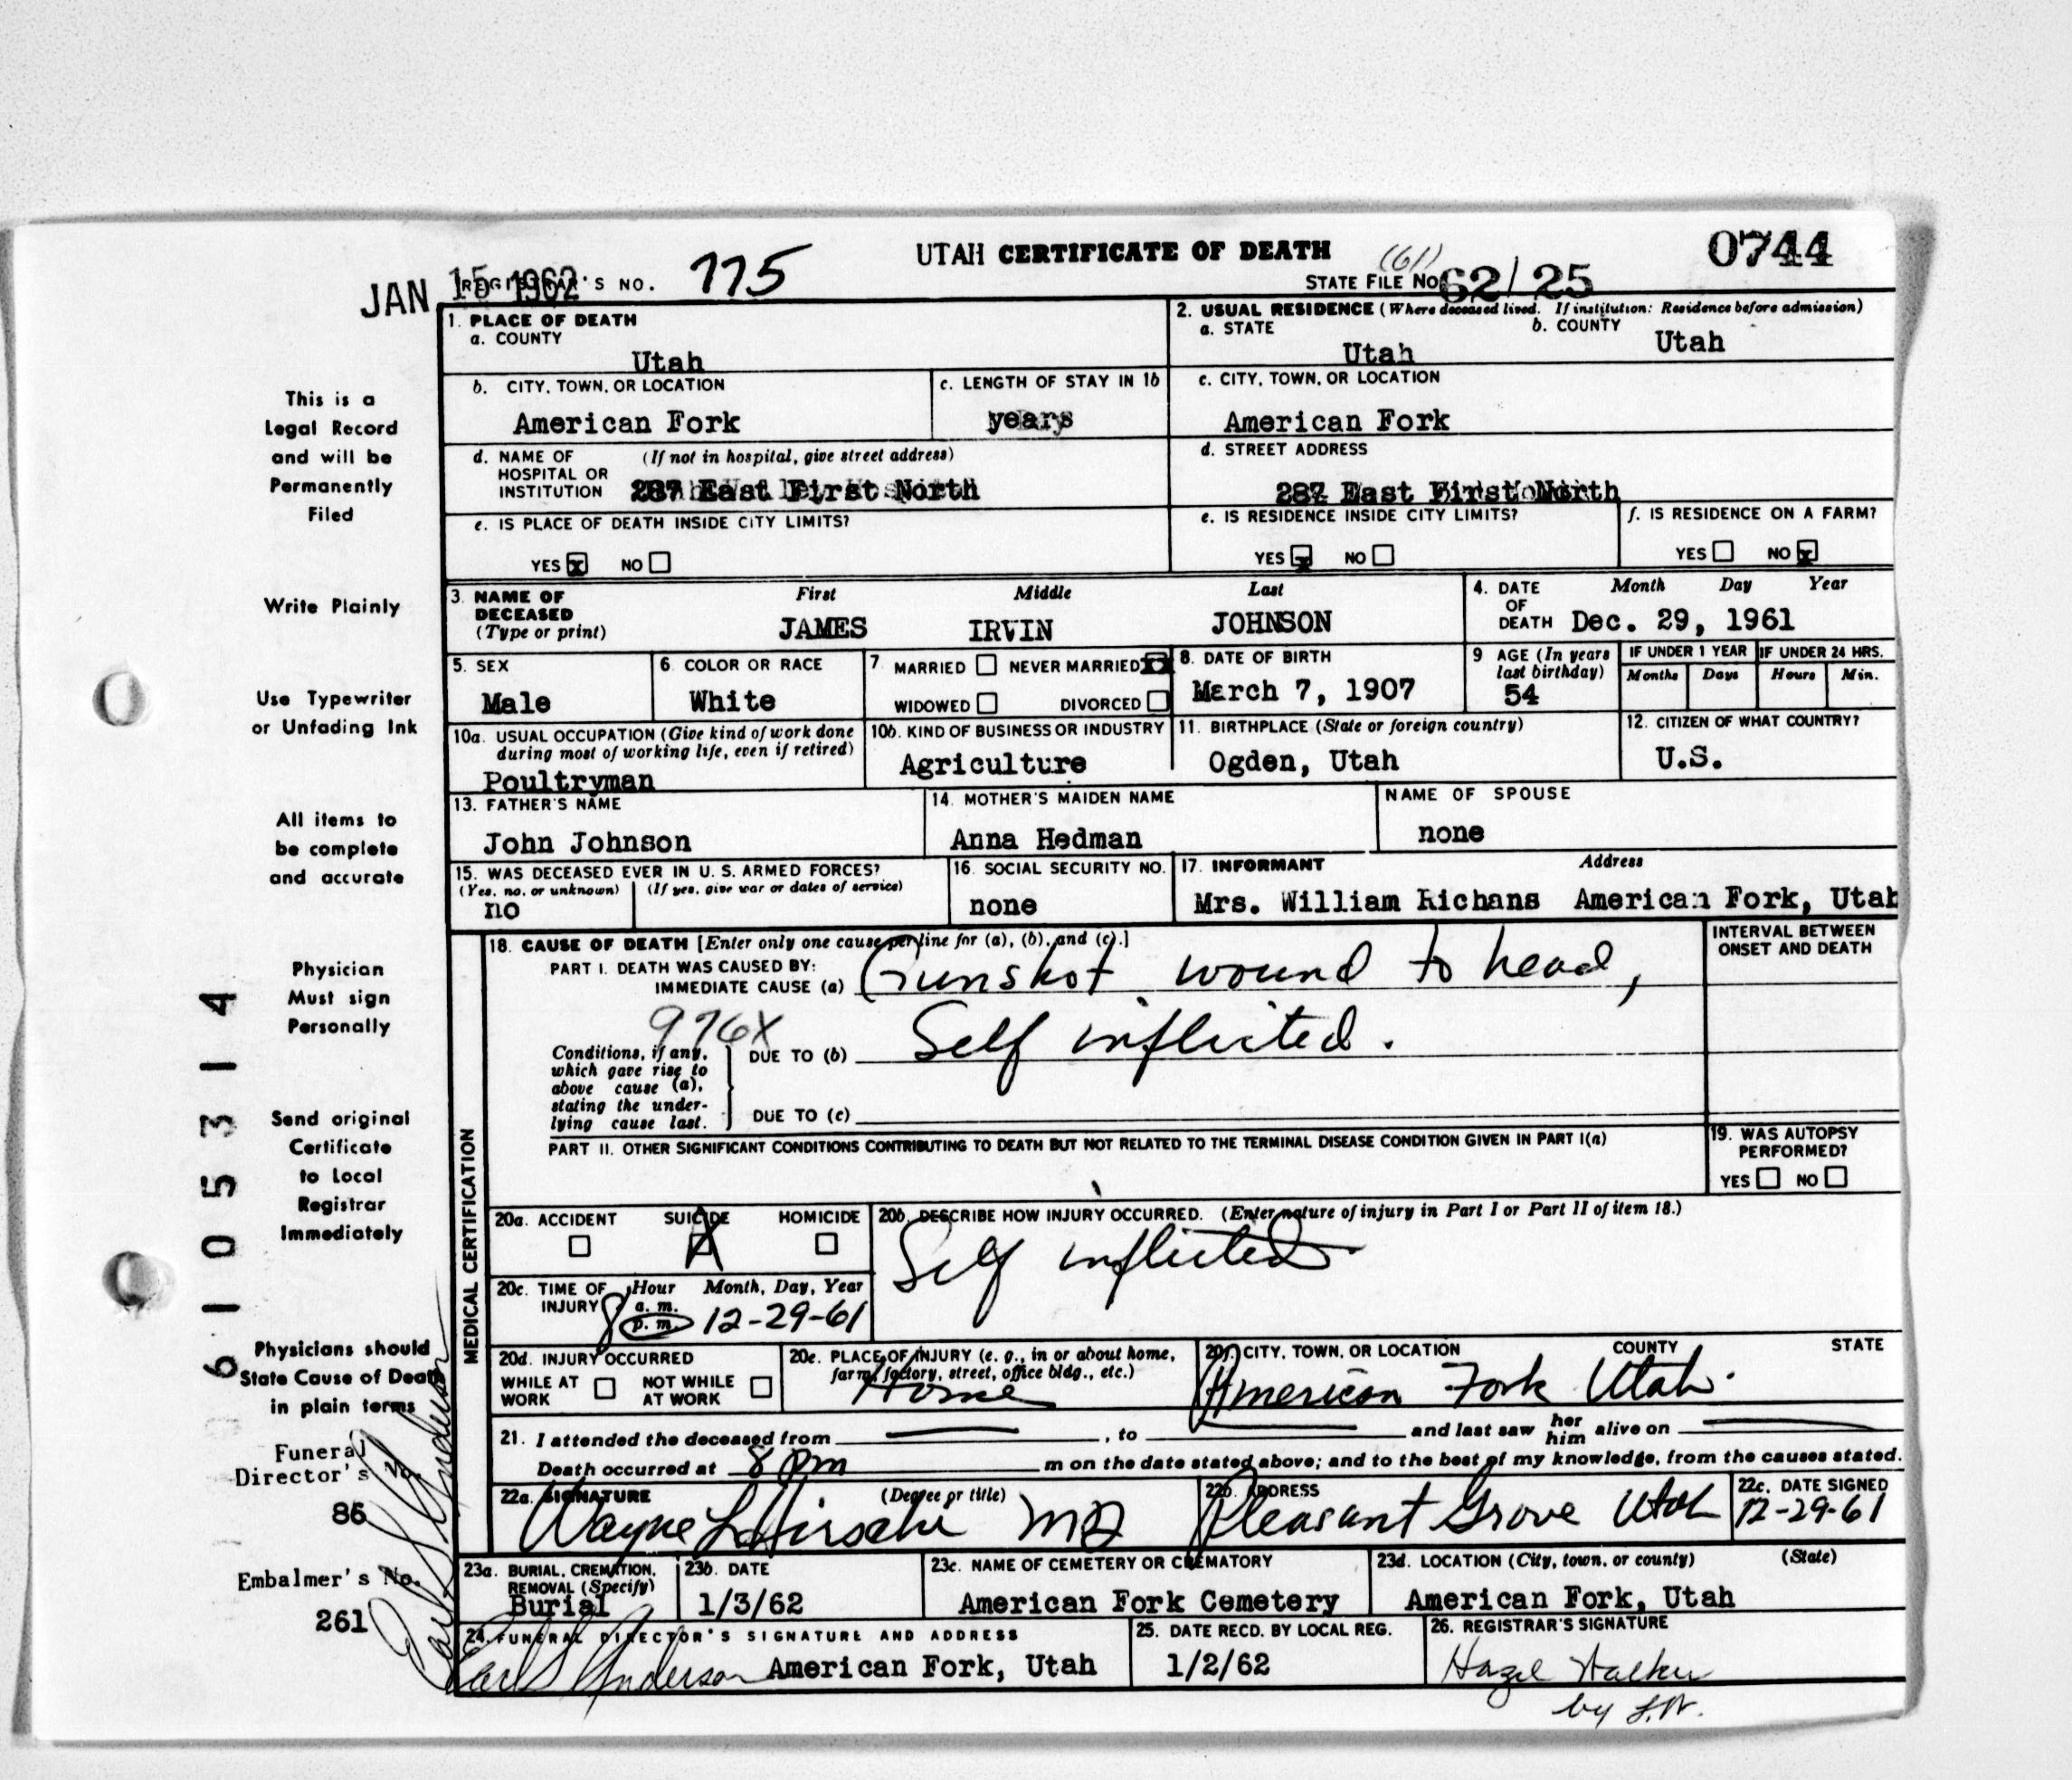 UTAH CERTIFICATE OF DEATH
0744
JAN 15 1962
REGISTRAR'S NO. 775
STATE FILE NO. (61) 62/25
1. PLACE OF DEATH
a. COUNTY
Utah
2. USUAL RESIDENCE (Where deceased lived. If institution: Residence before admission)
a. STATE
Utah
b. COUNTY
Utah
b. CITY, TOWN, OR LOCATION
American Fork
c. LENGTH OF STAY IN 1b
years
c. CITY, TOWN, OR LOCATION
American Fork
d. NAME OF HOSPITAL OR INSTITUTION (If not in hospital, give street address)
287 East First North
d. STREET ADDRESS
287 East First North
e. IS PLACE OF DEATH INSIDE CITY LIMITS?
YES x NO
e. IS RESIDENCE INSIDE CITY LIMITS?
YES x NO
f. IS RESIDENCE ON A FARM?
YES NO x
3. NAME OF DECEASED (Type or print)
First Middle Last
JAMES IRVIN JOHNSON
4. DATE OF DEATH
Month Day Year
Dec. 29, 1961
5. SEX
Male
6. COLOR OR RACE
White
7. MARRIED NEVER MARRIED x
WIDOWED DIVORCED
8. DATE OF BIRTH
March 7, 1907
9. AGE (In years last birthday)
54
IF UNDER 1 YEAR
Months Days
IF UNDER 24 HRS.
Hours Min.
10a. USUAL OCCUPATION (Give kind of work done during most of working life, even if retired)
Poultryman
10b. KIND OF BUSINESS OR INDUSTRY
Agriculture
11. BIRTHPLACE (State or foreign country)
Ogden, Utah
12. CITIZEN OF WHAT COUNTRY?
U.S.
13. FATHER'S NAME
John Johnson
14. MOTHER'S MAIDEN NAME
Anna Hedman
NAME OF SPOUSE
none
15. WAS DECEASED EVER IN U. S. ARMED FORCES?
(Yes, no, or unknown) (If yes, give war or dates of service)
no
16. SOCIAL SECURITY NO.
none
17. INFORMANT Address
Mrs. William Richans American Fork, Utah
MEDICAL CERTIFICATION
18. CAUSE OF DEATH [Enter only one cause per line for (a), (b), and (c).]
INTERVAL BETWEEN ONSET AND DEATH
PART I. DEATH WAS CAUSED BY:
IMMEDIATE CAUSE (a) Gunshot wound to head,
976X
Conditions, if any, which gave rise to above cause (a), stating the underlying cause last.
DUE TO (b) Self inflicted.
DUE TO (c)
PART II. OTHER SIGNIFICANT CONDITIONS CONTRIBUTING TO DEATH BUT NOT RELATED TO THE TERMINAL DISEASE CONDITION GIVEN IN PART I(a)
19. WAS AUTOPSY PERFORMED?
YES NO
20a. ACCIDENT SUICIDE X HOMICIDE
20b. DESCRIBE HOW INJURY OCCURRED. (Enter nature of injury in Part I or Part II of item 18.)
Self inflicted
20c. TIME OF INJURY
Hour Month, Day, Year
8 a. m. p. m. 12-29-61
20d. INJURY OCCURRED
WHILE AT WORK NOT WHILE AT WORK
20e. PLACE OF INJURY (e. g., in or about home, farm, factory, street, office bldg., etc.)
Home
20f. CITY, TOWN, OR LOCATION COUNTY STATE
American Fork Utah.
21. I attended the deceased from , to and last saw her him alive on
Death occurred at 8 pm m on the date stated above; and to the best of my knowledge, from the causes stated.
22a. SIGNATURE (Degree or title)
Wayne L Hirschi MD
22b. ADDRESS
Pleasant Grove Utah
22c. DATE SIGNED
12-29-61
23a. BURIAL, CREMATION, REMOVAL (Specify)
Burial
23b. DATE
1/3/62
23c. NAME OF CEMETERY OR CREMATORY
American Fork Cemetery
23d. LOCATION (City, town, or county) (State)
American Fork, Utah
24. FUNERAL DIRECTOR'S SIGNATURE AND ADDRESS
Earl S Anderson American Fork, Utah
25. DATE RECD. BY LOCAL REG.
1/2/62
26. REGISTRAR'S SIGNATURE
Hazel Walker
by L.W.
This is a
Legal Record
and will be
Permanently
Filed
Write Plainly
Use Typewriter
or Unfading Ink
All items to
be complete
and accurate
Physician
Must sign
Personally
Send original
Certificate
to Local
Registrar
Immediately
Physicians should
State Cause of Death
in plain terms
Funeral
Director's No.
86
Embalmer's No.
261
Earl S Anderson
61 05314